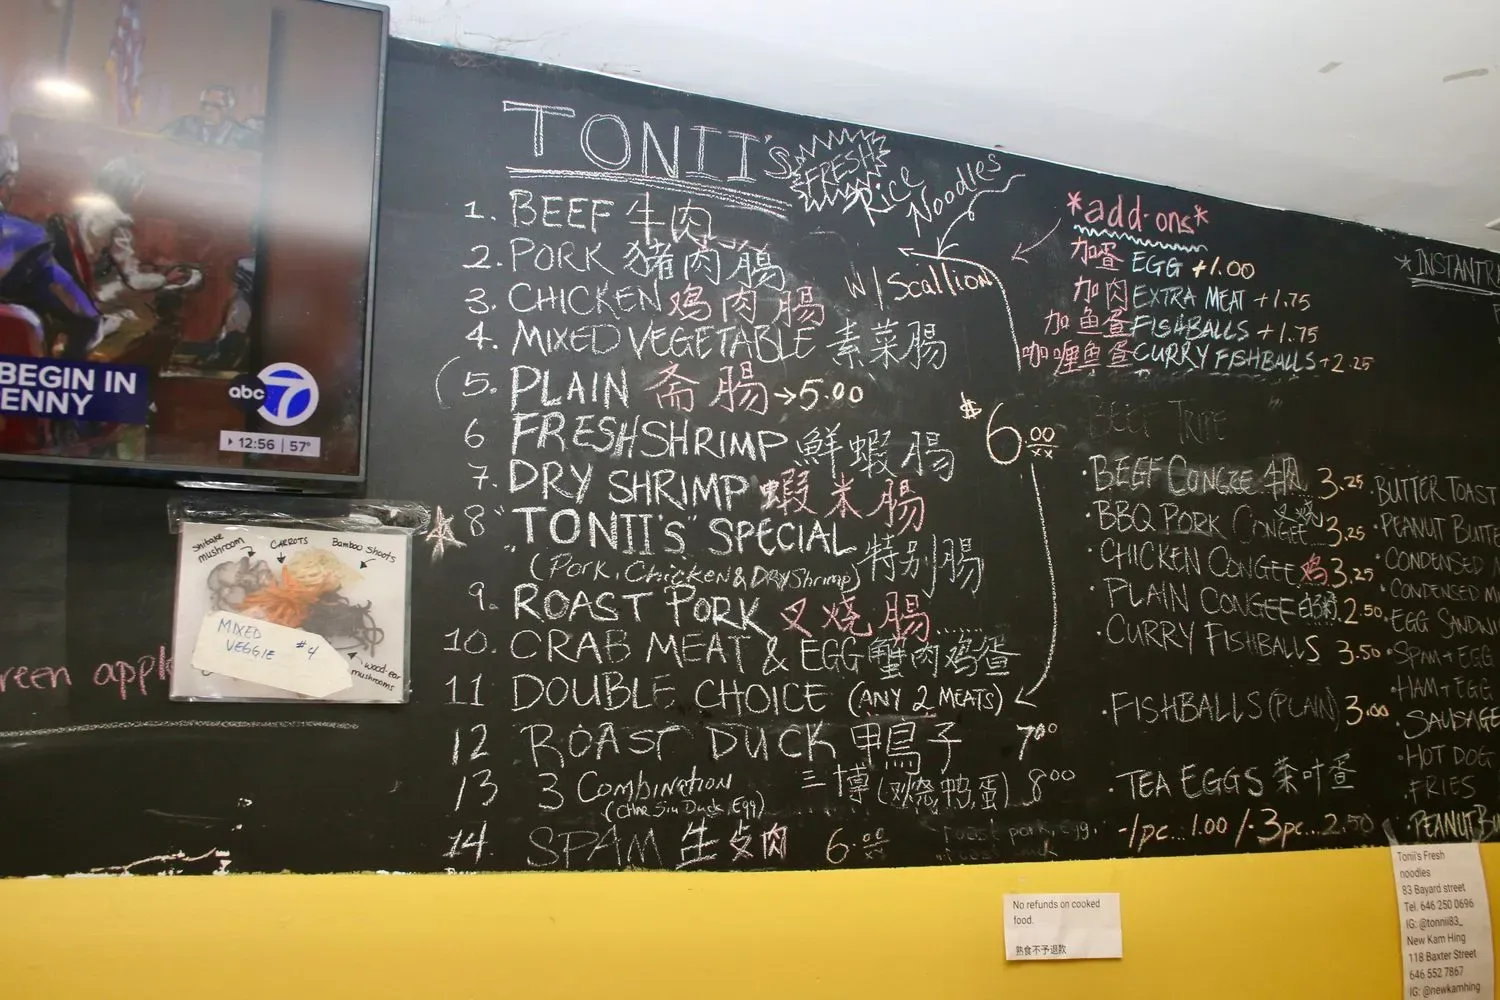 BEGIN IN
ENNY
abc 7
12:56 | 57°
TONII's FRESH Rice Noodles
1. BEEF 牛肉
2. PORK 猪肉腸
3. CHICKEN 鸡肉腸
w/ Scallion
4. MIXED VEGETABLE 素菜腸
5. PLAIN 斋腸 → 5.00
6 FRESH SHRIMP 鮮蝦腸
$6.00
7. DRY SHRIMP 蝦米腸
8 "TONII's" SPECIAL 特别腸
(Pork, Chicken & Dry Shrimp)
9. ROAST PORK 叉烧腸
10. CRAB MEAT & EGG 蟹肉鸡蛋
11 DOUBLE CHOICE (ANY 2 MEATS)
12 ROAST DUCK 鸭子 7.00
13 3 Combination 8.00
14. SPAM 6.00
*add-ons*
加蛋 EGG +1.00
加肉 EXTRA MEAT +1.75
加鱼蛋 FISHBALLS +1.75
咖喱鱼蛋 CURRY FISHBALLS +2.25
BEEF TRIPE
· BEEF CONGEE 牛肉 3.25
· BBQ PORK CONGEE 叉烧 3.25
· CHICKEN CONGEE 鸡 3.25
· PLAIN CONGEE 2.50
· CURRY FISHBALLS 3.50
· FISHBALLS (PLAIN) 3.00
· TEA EGGS 茶叶蛋
-1pc... 1.00 / -3pc... 2.50
* INSTANT
· BUTTER TOAST
· PEANUT BUTTE
· CONDENSED
· CONDENSED M
· EGG SANDWI
· SPAM + EGG
· HAM + EGG
· SAUSAGE
· HOT DOG
· FRIES
· PEANUT BU
Shitake mushroom
CARROTS
Bamboo shoots
MIXED VEGGIE #4
wood-ear mushrooms
reen appl
No refunds on cooked
food.
熟食不予退款
Tonii's Fresh
noodles
83 Bayard street
Tel. 646 250 0696
IG: @tonnii83_
New Kam Hing
118 Baxter Street
646 552 7867
IG: @newkamhing